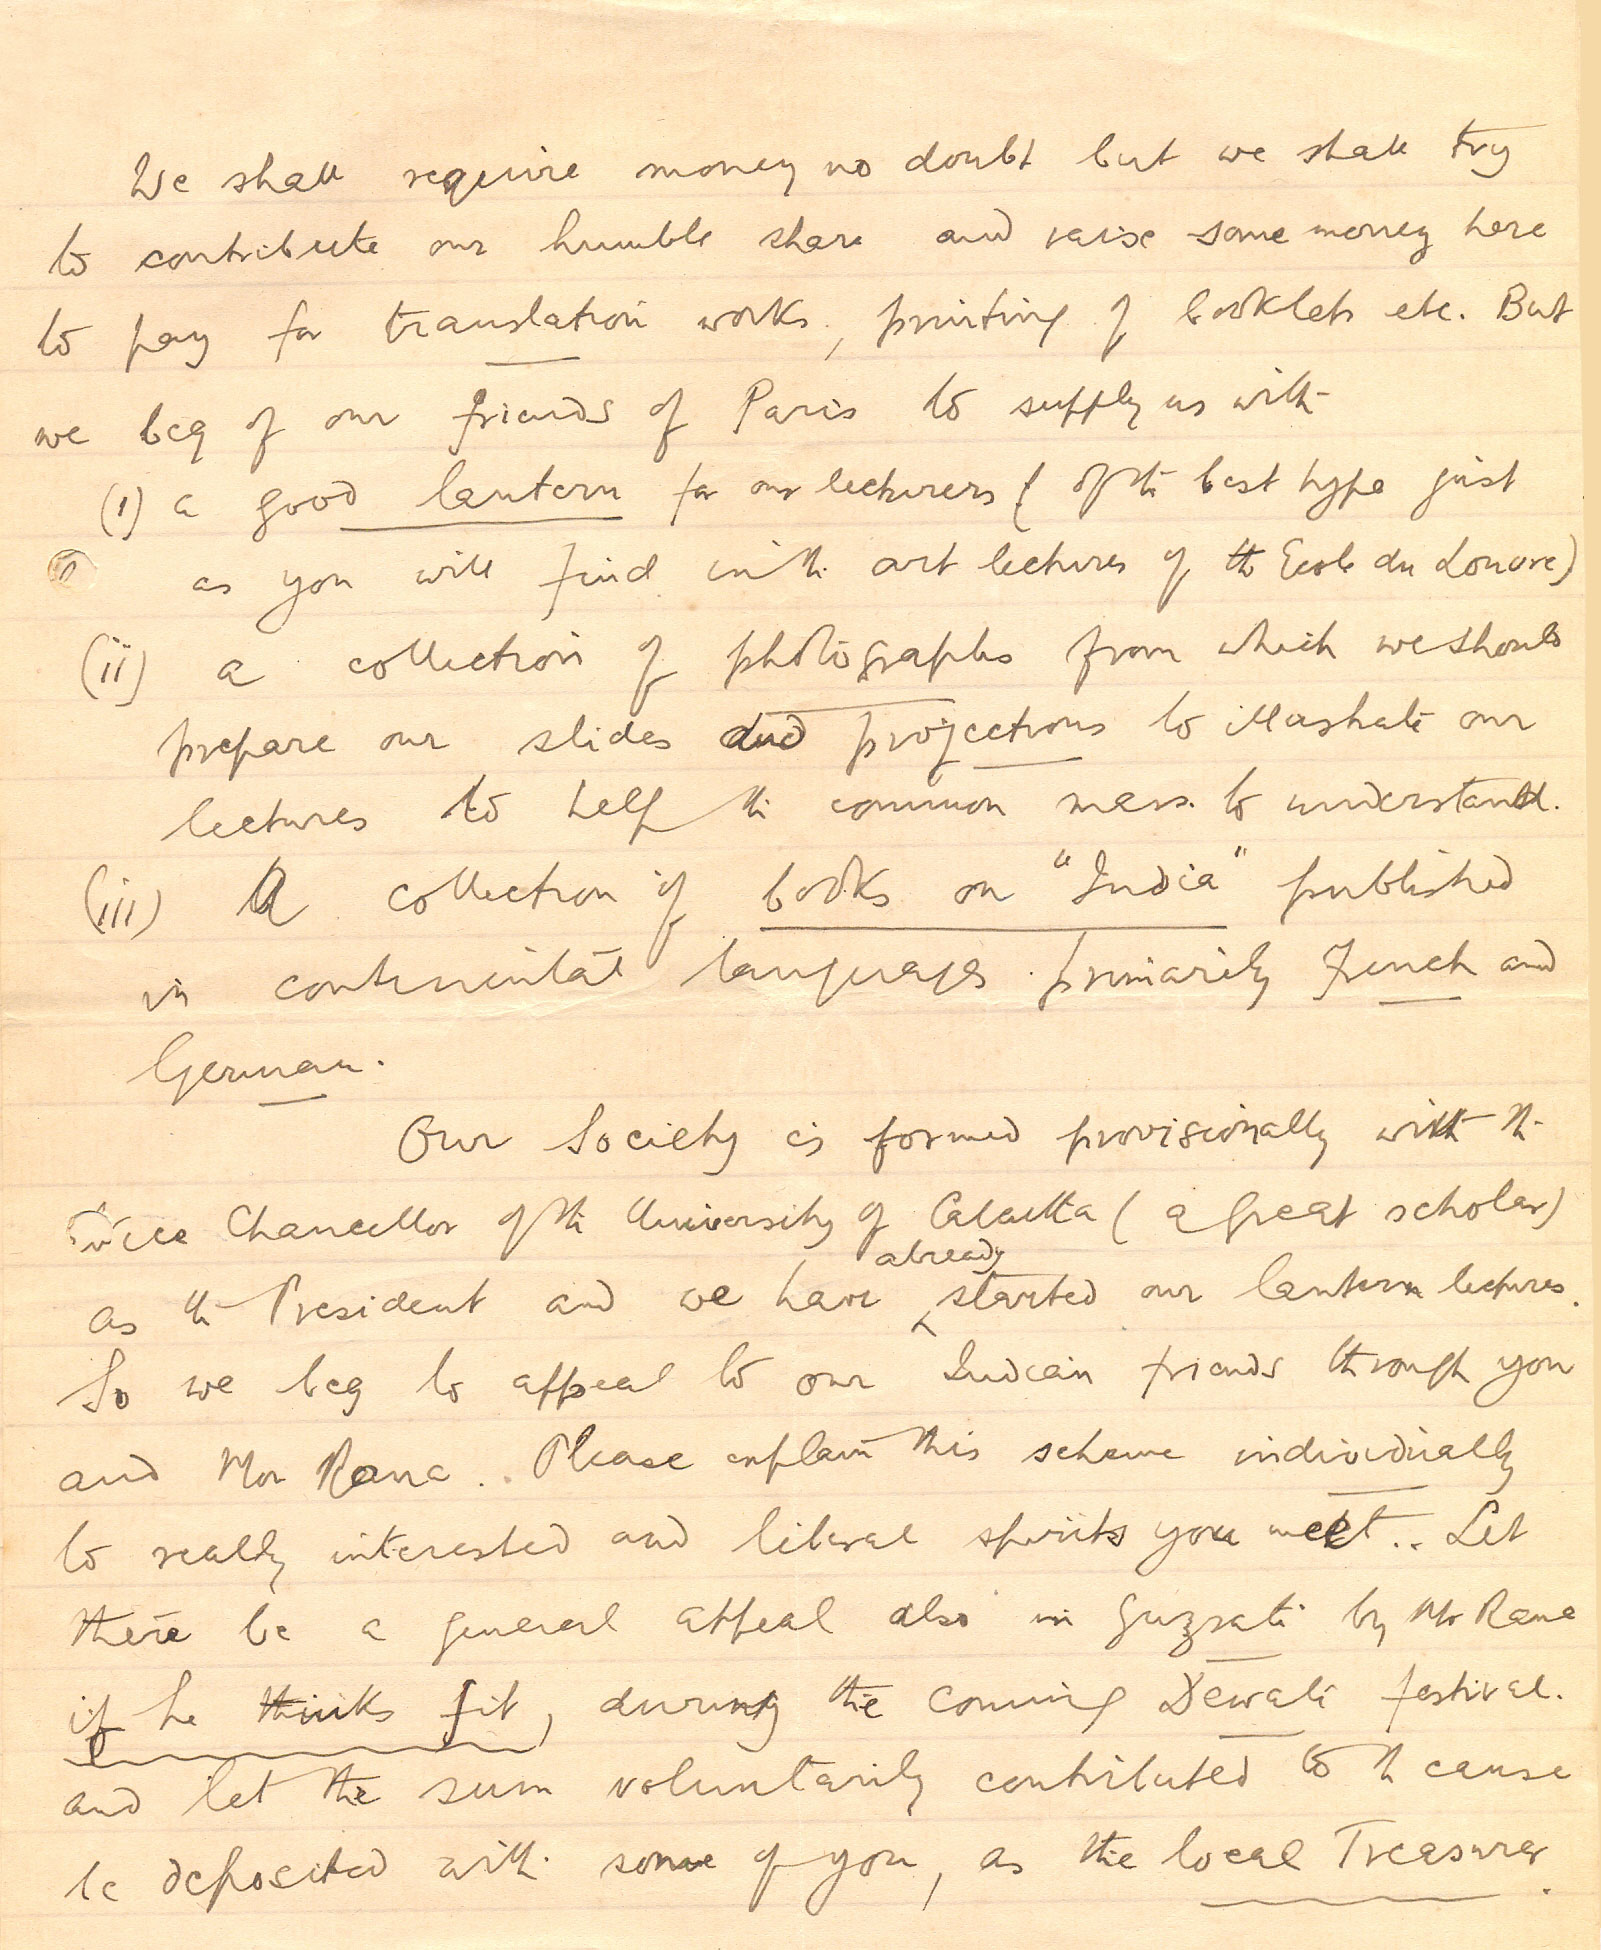 We shall require money no doubt but we shall try
to contribute our humble share and raise some money here
to pay for translation works, printing of booklets etc. But
we beg of our friends of Paris to supply us with
(i) a good lantern for our lecturers ( of the best type just
as you will find in the art lectures of the Ecole du Louvre)
(ii) a collection of photographs from which we should
prepare our slides and projections to illustrate our
lectures to help the common mass to understand.
(iii) A collection of books on "India" published
in continental languages primarily French and
German.
Our Society is formed provisionally with the
Vice Chancellor of the University of Calcutta (a great scholar)
as the President and we have already started our lantern lectures.
So we beg to appeal to our Indian friends through you
and Mr Rana. Please explain this scheme individually
to really interested and liberal spirits you meet.. Let
there be a general appeal also in Guzrati by Mr Rana
if he thinks fit, during the coming Dewali festival.
and let the sum voluntarily contributed to the cause
be deposited with some of you, as the local Treasurer.